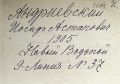 Андриевский
Иосиф Астапович
1905
Новый Водопой
9 Линия N 37